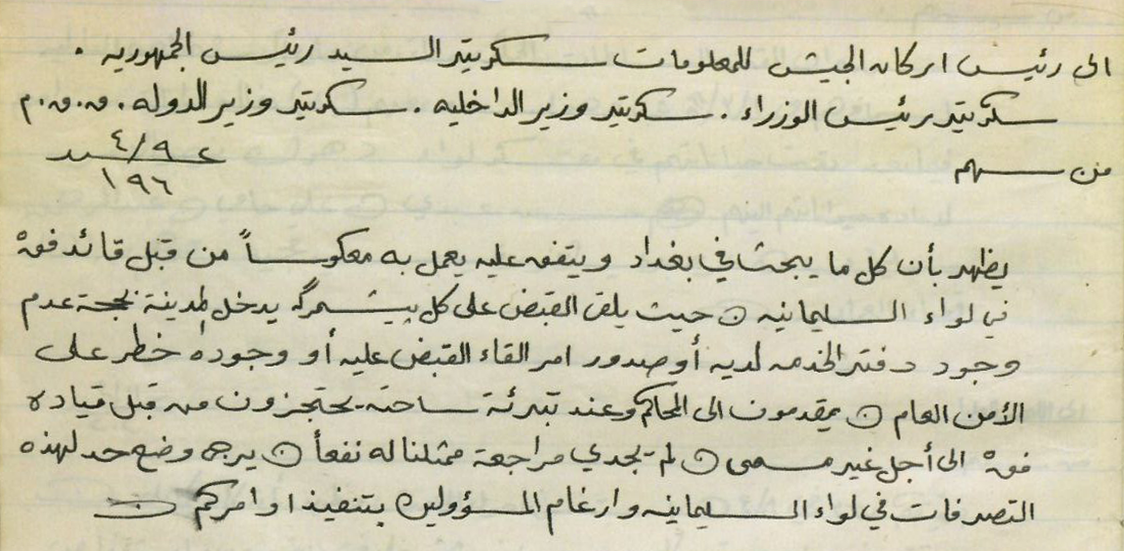 الى رئيس اركان الجيش للمعلومات سكرتير السيد رئيس الجمهوريه .
سكرتير رئيس الوزراء . سكرتير وزير الداخليه . سكرتير وزير الدوله . ق.ق.م
من سهم
٤/٩
١٩٦
يظهر بأن كل ما يبحث في بغداد ويتفق عليه يعمل به معكوساً من قبل قائد فقة
في لواء السليمانيه حيث يلق القبض على كل پيشمرگه يدخل المدينة بحجة عدم
وجود دفتر الخدمه لديه أو صدور امر القاء القبض عليه أو وجوده خطر على
الأمن العام يقدمون الى المحاكم وعند تبرئة ساحته يحتجزون من قبل قياده
فقة الى أجل غير مسمى لم تجدي مراجعة ممثلنا له نفعاً يرجى وضع حد لهذه
التصرفات في لواء السليمانيه وارغام المسؤولين بتنفيذ اوامركم